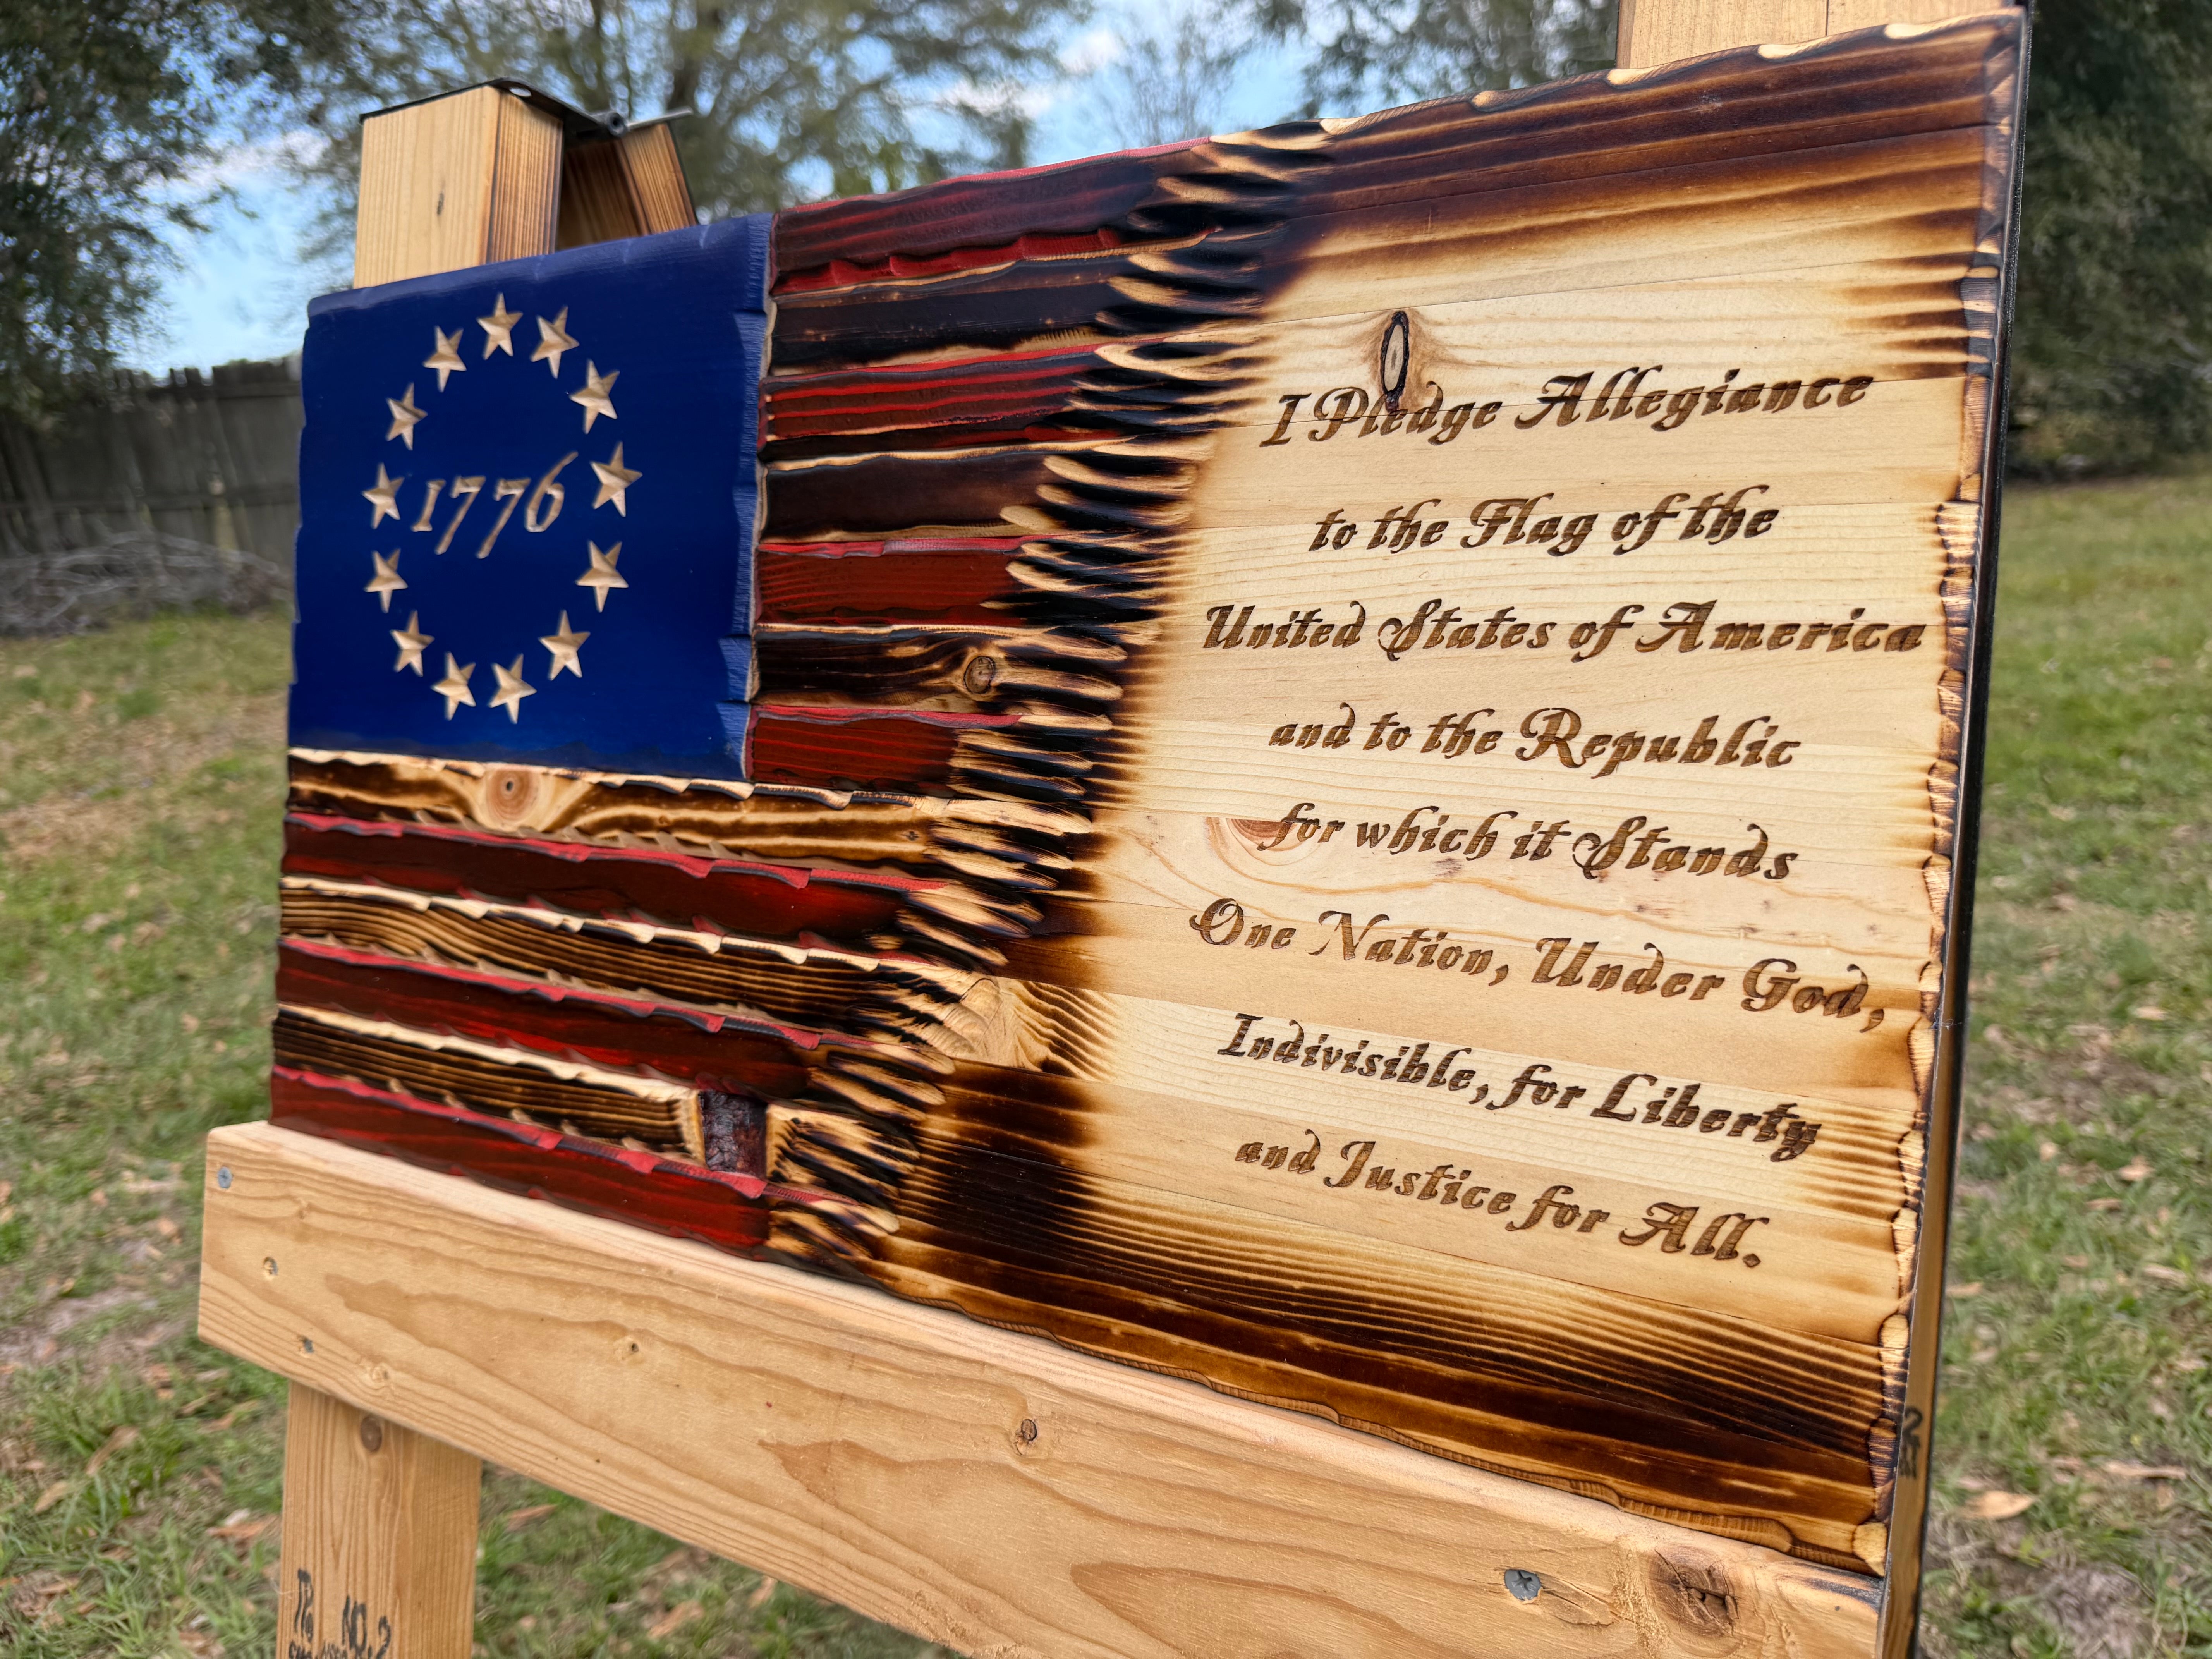 1776
I Pledge Allegiance
to the Flag of the
United States of America
and to the Republic
for which it Stands
One Nation, Under God,
Indivisible, for Liberty
and Justice for All.
NO.2